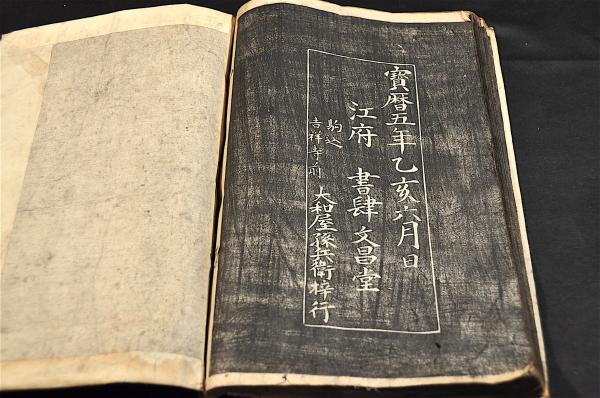 寳暦五年乙亥六月日
江府 書肆 文昌堂
駒込
吉祥寺前 大和屋孫兵衛梓行